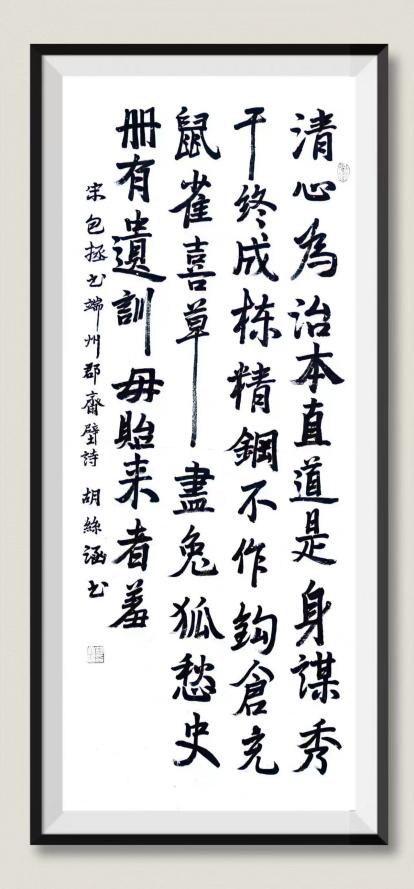 清心為治本直道是身謀秀
干終成栋精鋼不作鈎倉充
鼠雀喜草盡兔狐愁史
册有遺訓毋貽来者羞
宋包拯书端州郡齋壁詩 胡絲涵书